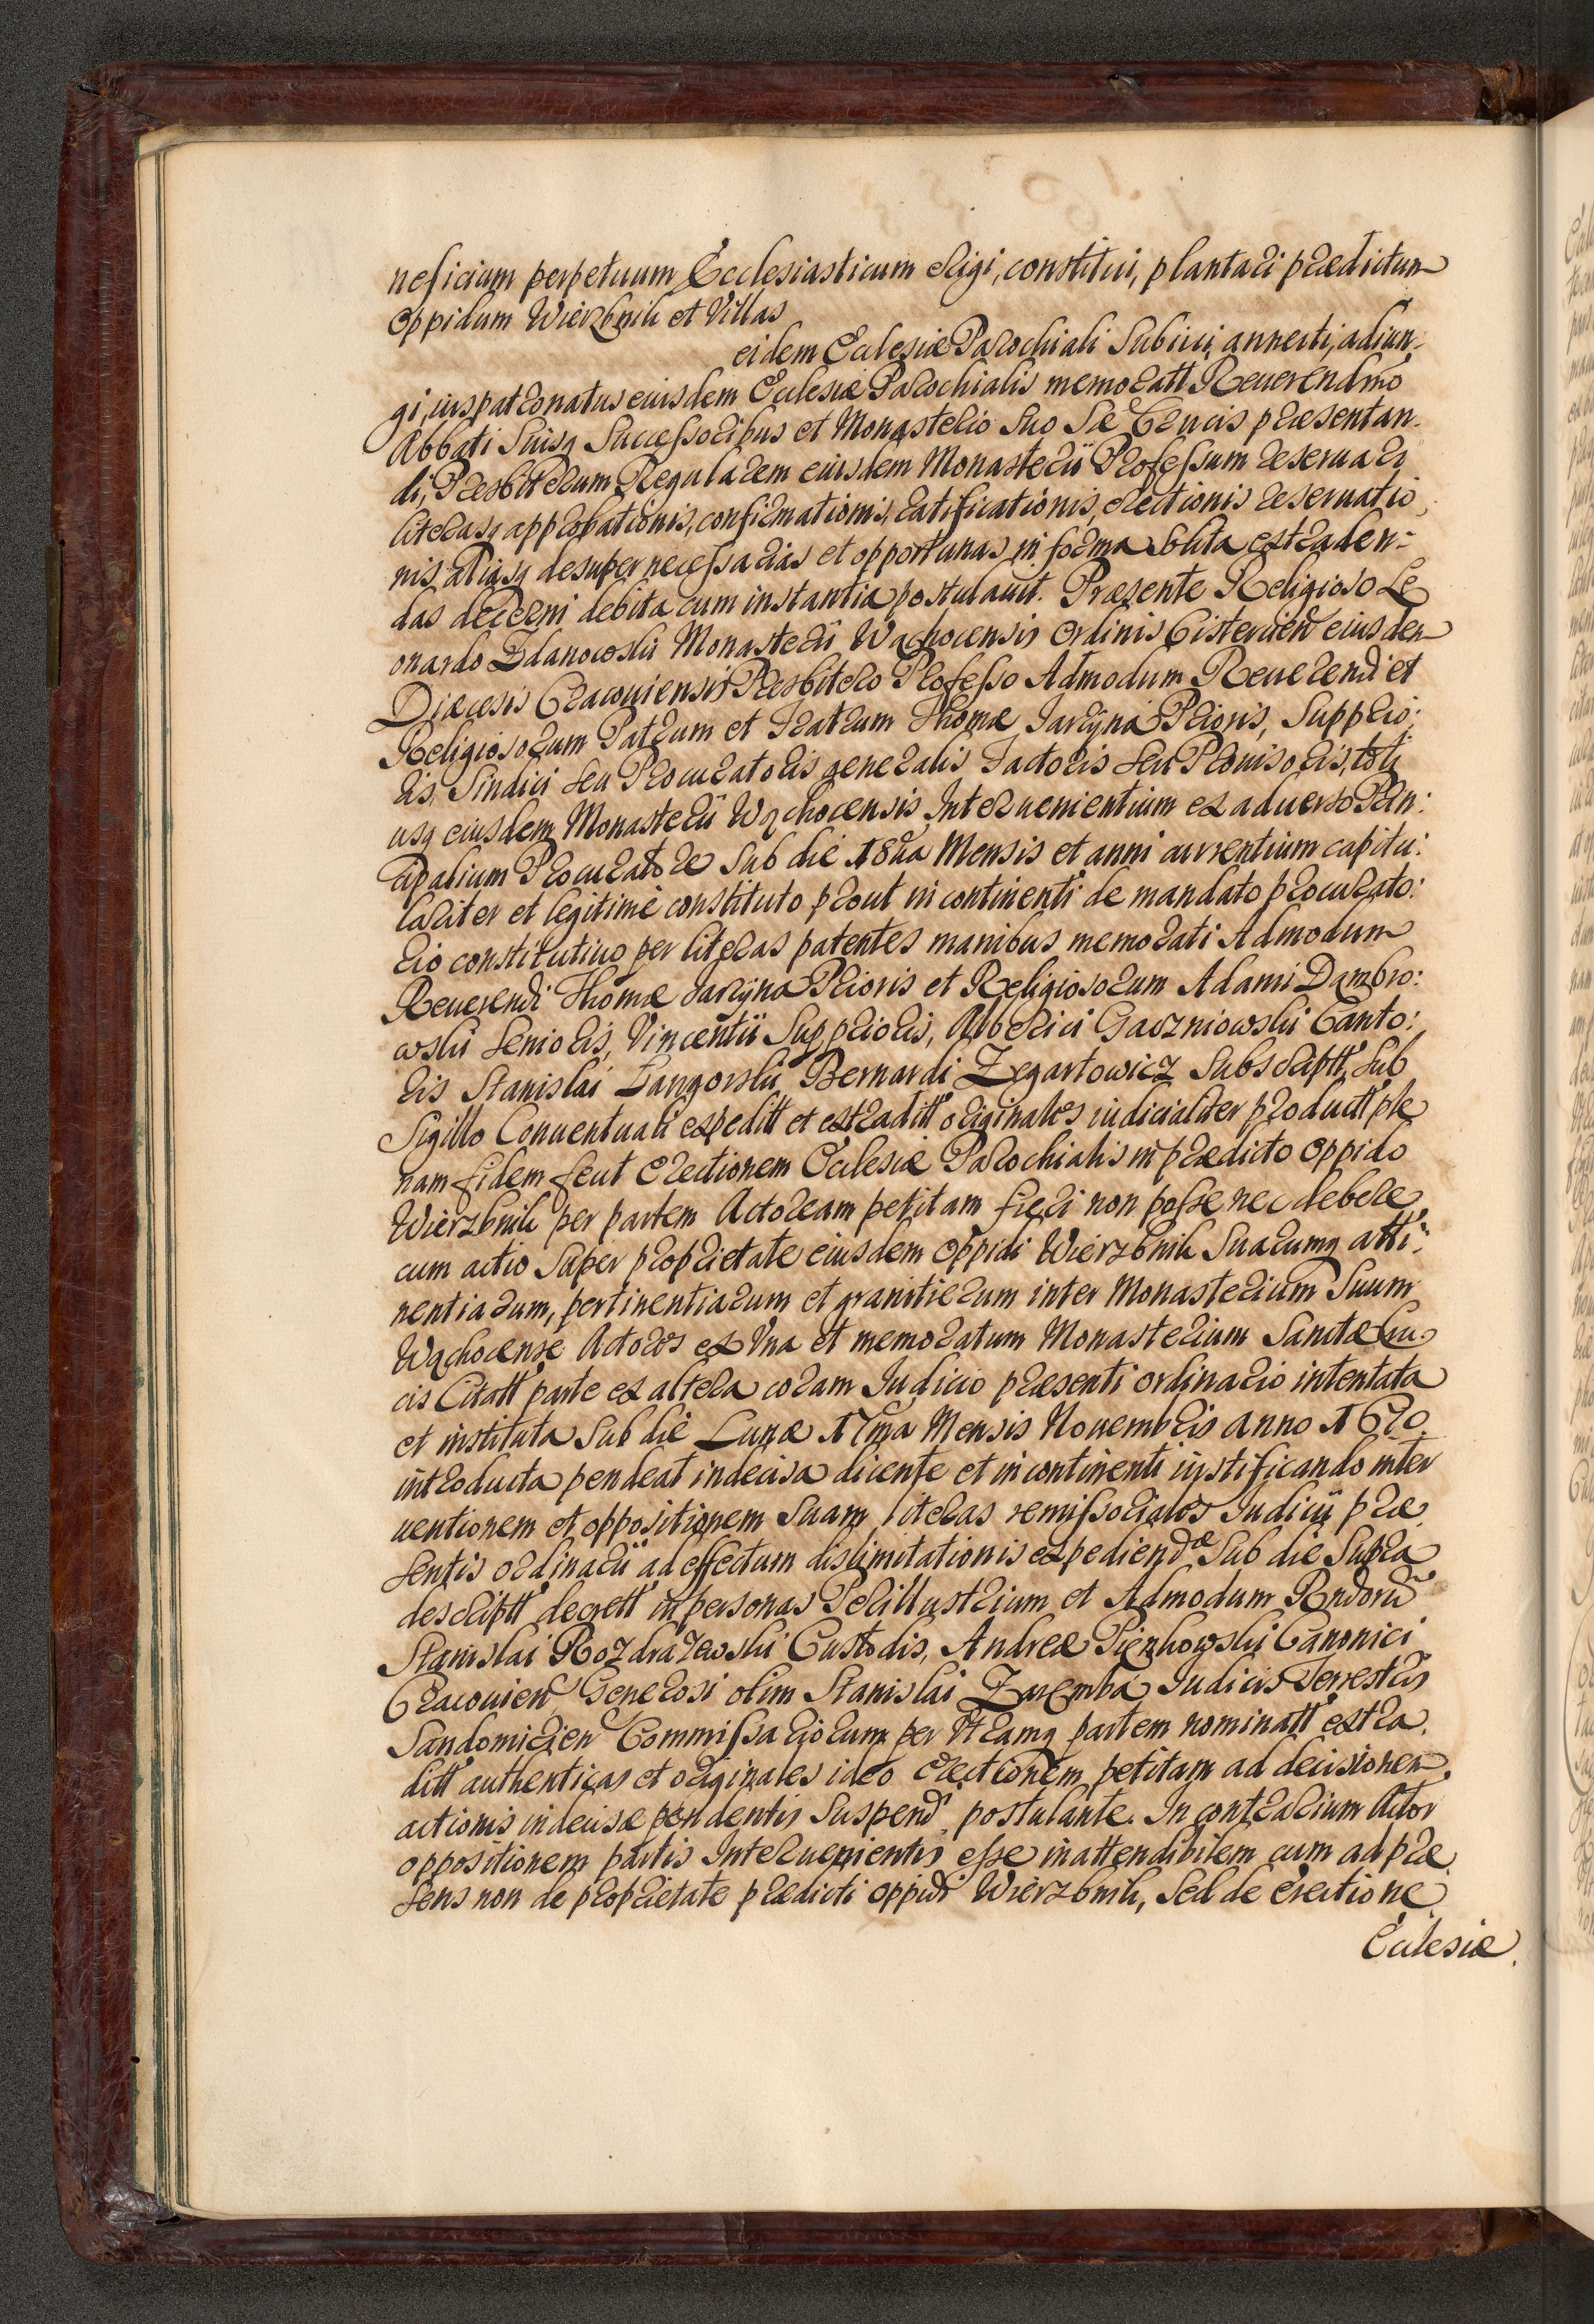 neficium perpetuum Ecclesiasticum erigi, constitui, plantari prædictum
Oppidum Wierzbnik et Villas
eidem Ecclesiæ Parochiali Subiici, annecti, adiun-
gi, iuspatronatus eiusdem Ecclesiæ Parochialis memoratt Reuerendmo
Abbati Suisq Successoribus et Monasterio Suo Sæ Crucis præsentan-
di, Presbiterum Regularem eiusdem Monasterii Professum reseruari
literasq approbationis, confirmationis, ratificationis, erectionis reseruatio
nis aliasq desuper necessarias et opportunas in forma solita extraden-
das decerni debita cum instantia postulauit. Præsente Religioso Le
onardo Zdanowski Monasterii Wąchocensis Ordinis Cistercien eiusdem
Diæcesis Cracouiensis Presbitero Professo Admodum Reuerendi et
Religiosorum Patrum et Fratrum Thomæ Jarzyna Prioris, Supprio:
ris, Sindici seu Procuratoris generalis Factoris seu Prouisoris, toti
usq eiusdem Monasterii Wąchocensis Interuenientium ex aduerso Prin:
cipalium Procuratore Sub die 18ua Mensis et anni currentium capitu:
lariter et legitime constituto prout in continenti de mandato procurato:
rio constitutiuo per literas patentes manibus memorati Admodum
Reuerendi Thomæ Jarzyna Prioris et Religiosorum Adami Dambro:
wski Senioris, Vincentii Supprioris, Alberici Gaczniowski Canto:
ris Stanislai Langorski Bernardi Zegartowicz Subscriptt Sub
Sigillo Conuentuali expeditt et extraditt originales iudicialiter productt ple
nam fidem fecit Erectionem Ecclesiæ Parochialis in prædicto Oppido
Wierzbnik per partem Actoream petitam fieri non posse nec debere
cum actio Super proprietate eiusdem Oppidi Wierzbnik Suarumq atti:
nentiarum, pertinentiarum et granitierum inter Monasterium Suum
Wąchocense Actores ex Vna et memoratum Monasterium Sanctæ Cru
cis Citatt parte ex altera coram Iudicio præsenti ordinario intentata
et instituta Sub die Lunæ 17ma Mensis Nouembris anno 1620
introducta pendeat indecisa dicente et in continenti iustificando inter
uentionem et oppositionem Suam literas remissoriales Iudicii præ
sentis ordinarii ad effectum dislimitationis expediendæ Sub die Supra
descriptt decrett in personas Perillustrium et Admodum Rndorū
Stanislai Rozdrazewski Custodis, Andreæ Pienkowski Canonici
Cracouien Generosi olim Stanislai Zaremba Iudicis Terrestris
Sandomirien Commissariorum per Vtramq partem nominatt extra
ditt authenticas et originales ideo erectionem petitam ad decisionem
actionis indecisæ pendentis Suspendi postulante. In contrarium Actor
oppositionem partis Interuenientis esse inattendibilem cum ad præ
sens non de proprietate prædicti oppidi Wierzbnik, Sed de erectione
Ecclesiæ